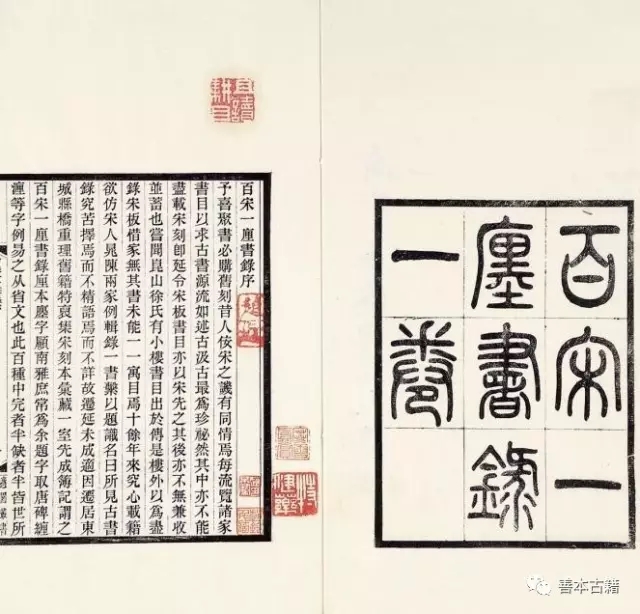 百宋一廛
書錄
一卷
百宋一廛書錄序
予喜聚書必購舊刻昔人佞宋之譏有同情焉每流覽諸家
書目以求古書源流如述古汲古最爲珍祕然其中亦不能
盡載宋刻卽延令宋板書目亦以宋先之其後亦不無兼收
並蓄也嘗聞崑山徐氏有小樓書目出於傳是樓外以爲盡
錄宋板惜家無其書未能一一寓目焉十餘年來究心載籍
欲仿宋人晁陳兩家例輯錄一書槩以題識名曰所見古書
錄究苦擇焉而不精語焉而不詳故遷延未成適因遷居東
城縣橋重理舊籍特裒集宋刻本彙藏一室先成簿記謂之
百宋一廛書錄廛本廛字顧南雅庶常爲余題字取唐碑纏
瀍等字例易之从省文也此百種中完者半缺者半皆世所
善本古籍